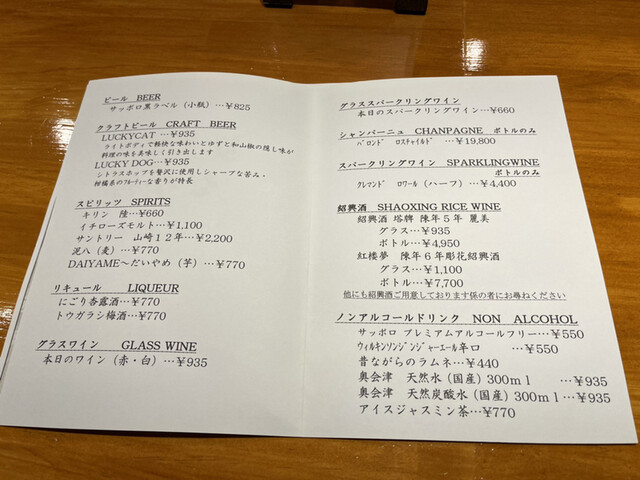 ビール BEER
サッポロ黒ラベル (小瓶) …¥825
クラフトビール CRAFT BEER
LUCKYCAT …¥935
ライトボディで軽快な味わいとゆずと和山椒の隠し味が
料理の味を美味しく引き出します
LUCKY DOG…¥935
シトラスホップを贅沢に使用しシャープな苦み、
柑橘系のフルーティーな香りが特長
スピリッツ SPIRITS
キリン 陸…¥660
イチローズモルト…¥1,100
サントリー 山崎12年…¥2,200
泥八 (麦) …¥770
DAIYAME～だいやめ (芋) …¥770
リキュール LIQUEUR
にごり杏露酒…¥770
トウガラシ梅酒…¥770
グラスワイン GLASS WINE
本日のワイン (赤・白) …¥935
グラススパークリングワイン
本日のスパークリングワイン…¥660
シャンパーニュ CHANPAGNE ボトルのみ
バロンド ロスチャイルド …¥19,800
スパークリングワイン SPARKLINGWINE
ボトルのみ
クレマンド ロワール (ハーフ) …¥4,400
紹興酒 SHAOXING RICE WINE
紹興酒 塔牌 陳年5年 麗美
グラス…¥935
ボトル…¥4,950
紅楼夢 陳年6年彫花紹興酒
グラス…¥1,100
ボトル…¥7,700
他にも紹興酒ご用意しております係の者にお尋ねください
ノンアルコールドリンク NON ALCOHOL
サッポロ プレミアムアルコールフリー…¥550
ウィルキンソンジンジャーエール辛口 …¥550
昔ながらのラムネ…¥440
奥会津 天然水 (国産) 300ml …¥935
奥会津 天然炭酸水 (国産) 300ml…¥935
アイスジャスミン茶…¥770